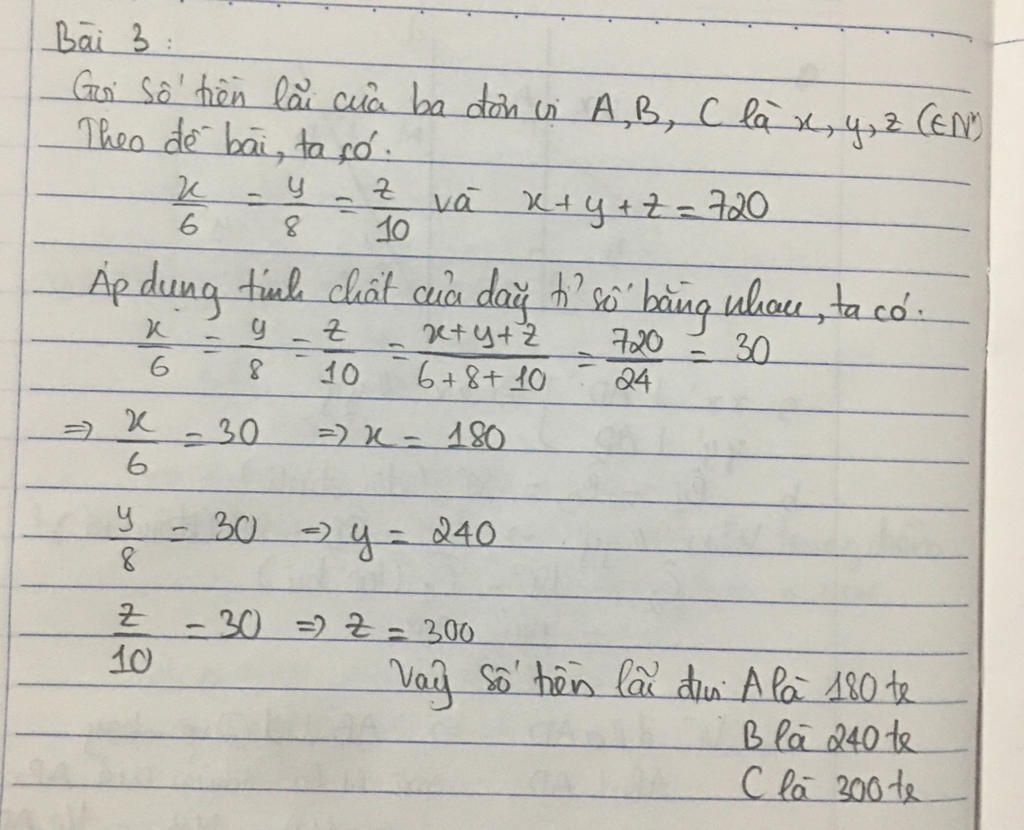 Bài 3:
Gọi số tiền lãi của ba đơn vị A, B, C là x, y, z (∈N*)
Theo đề bài, ta có:
x/6 = y/8 = z/10 và x + y + z = 720
Áp dụng tính chất của dãy tỉ số bằng nhau, ta có:
x/6 = y/8 = z/10 = (x+y+z)/(6+8+10) = 720/24 = 30
⇒ x/6 = 30 ⇒ x = 180
y/8 = 30 ⇒ y = 240
z/10 = 30 ⇒ z = 300
Vậy số tiền lãi đvị A là 180 tr
B là 240 tr
C là 300 tr